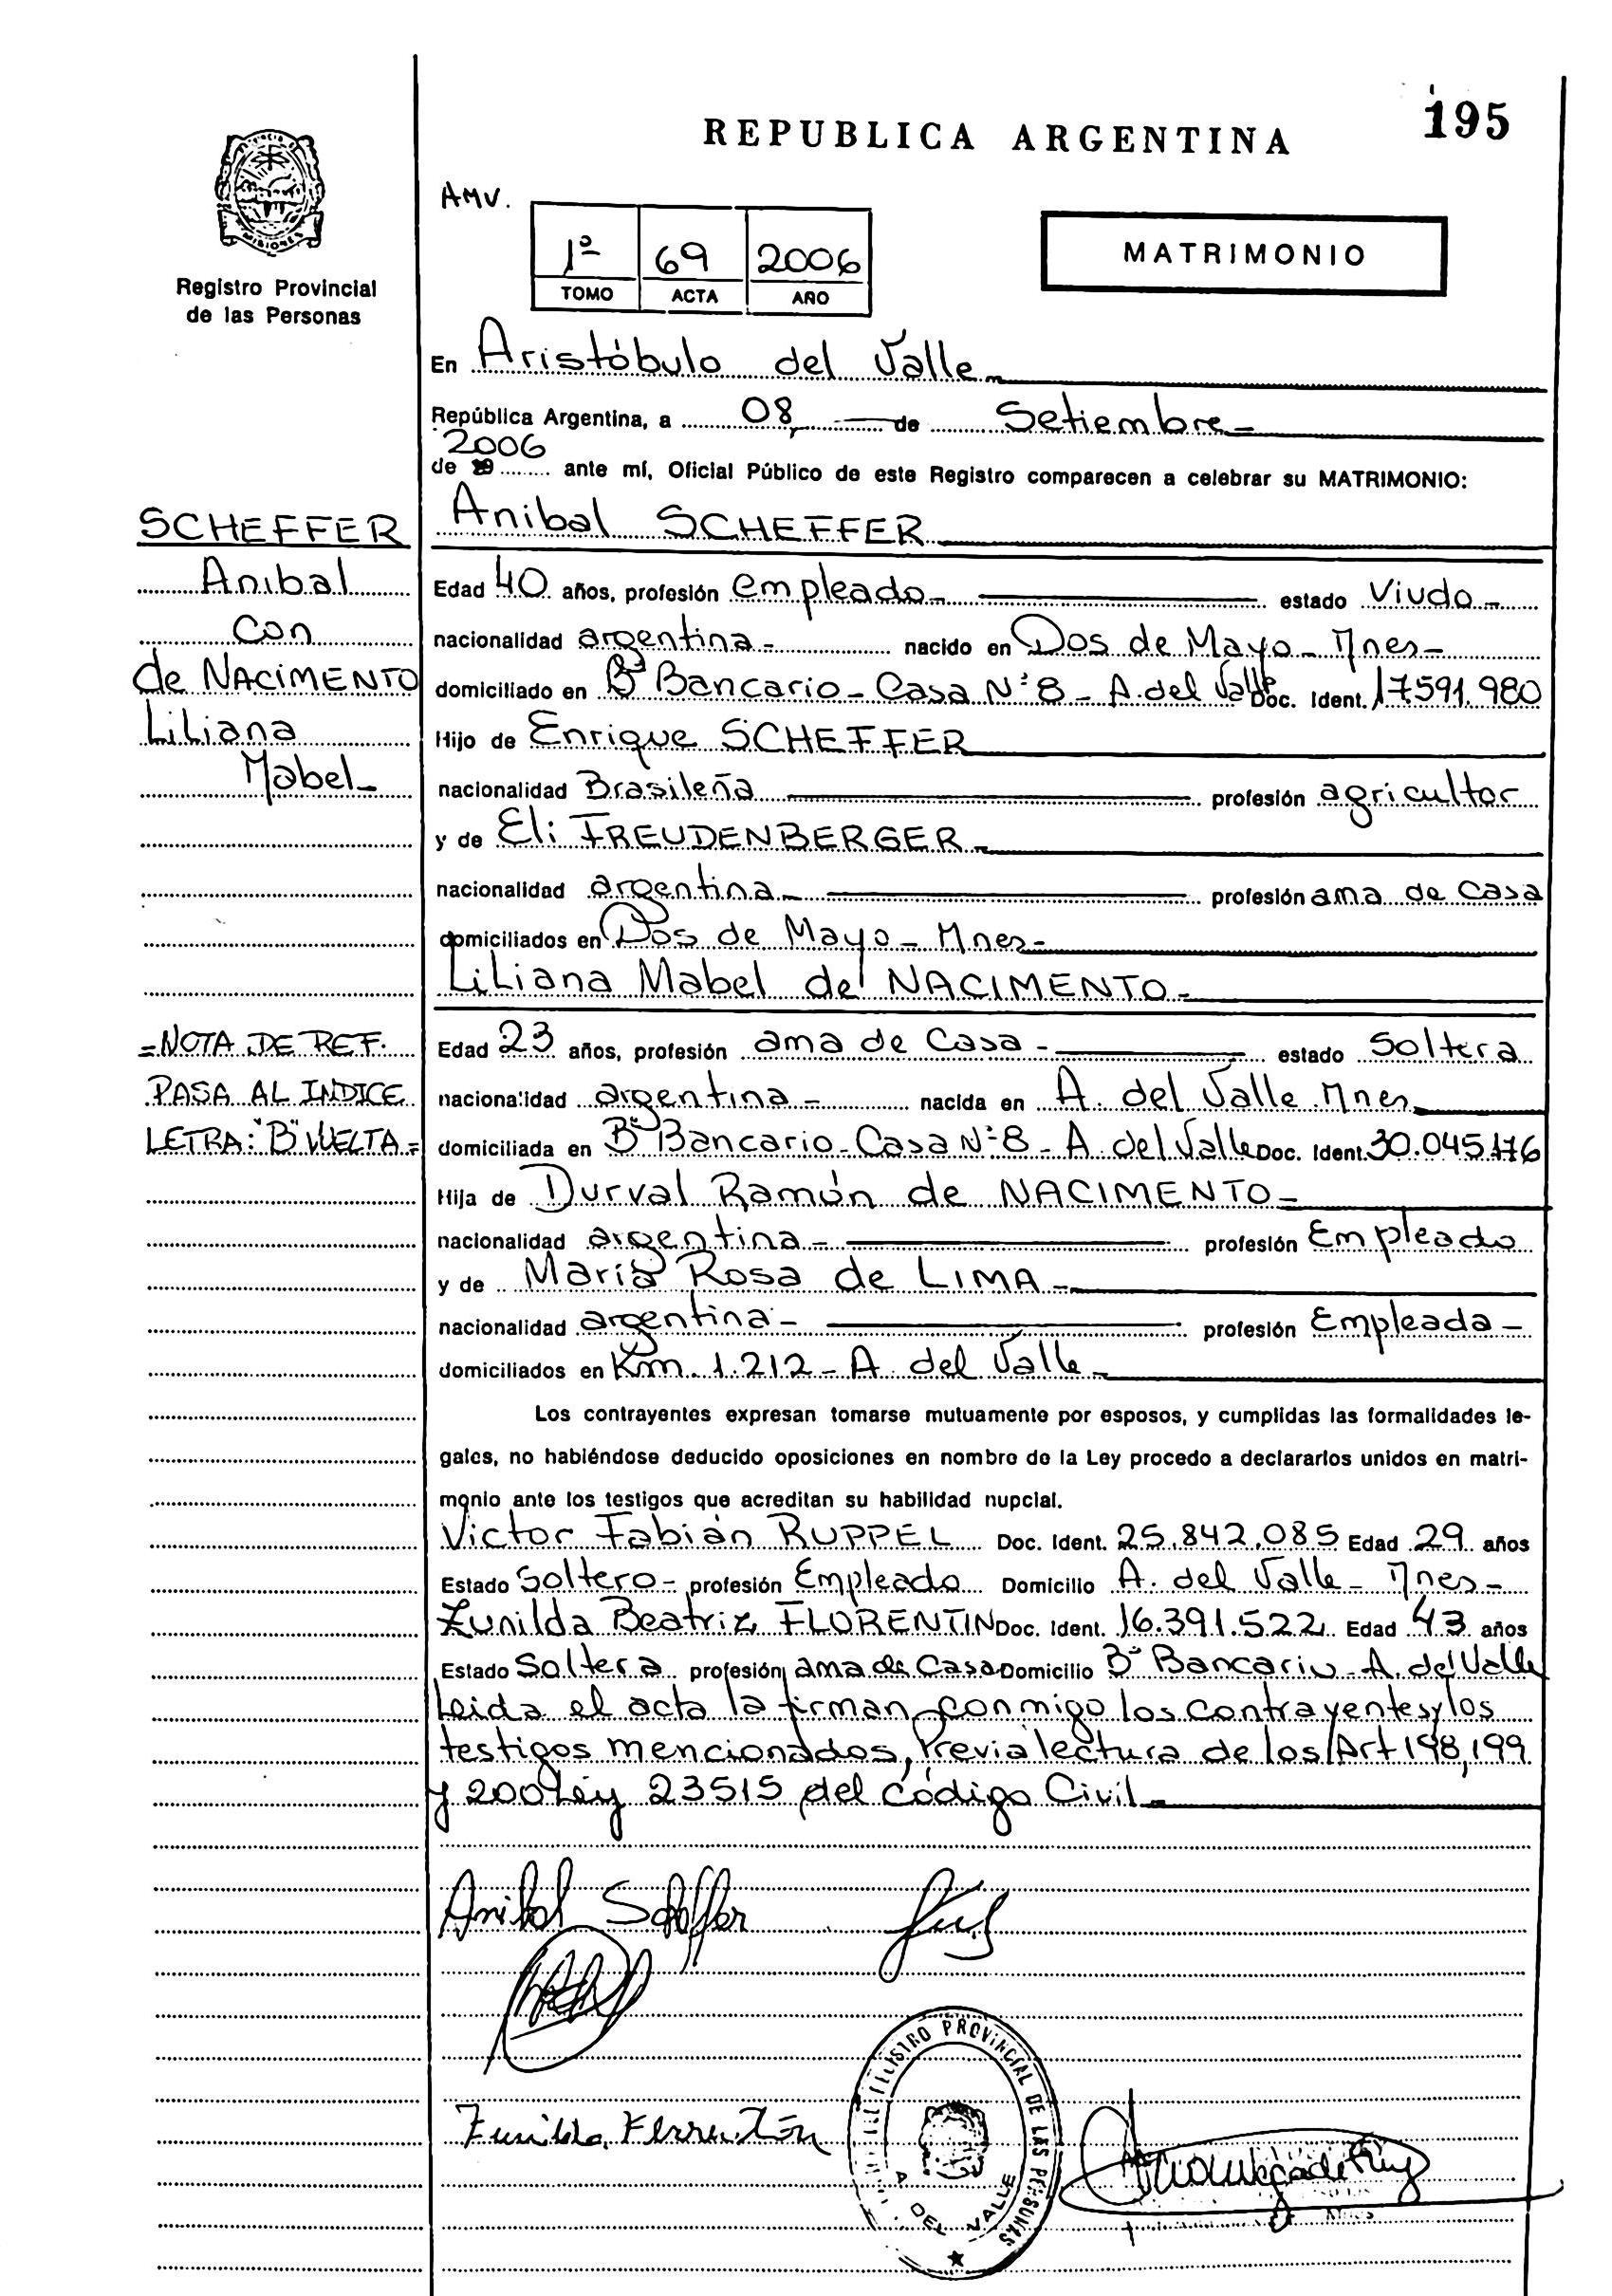 195
REPUBLICA ARGENTINA
AMV.
MISIONES
Registro Provincial
de las Personas
1º 69 2006
TOMO ACTA AÑO
MATRIMONIO
En Aristóbulo del Valle
República Argentina, a 08, de Setiembre
2006
de 19 ante mí, Oficial Público de este Registro comparecen a celebrar su MATRIMONIO:
SCHEFFER
Anibal
con
de NACIMENTO
Liliana
Mabel
Anibal SCHEFFER
Edad 40 años, profesión empleado estado Viudo
nacionalidad argentina nacido en Dos de Mayo - Mnes
domiciliado en Bº Bancario - Casa Nº 8 - A. del Valle Doc. Ident. 17.591.980
Hijo de Enrique SCHEFFER
nacionalidad Brasileña profesión agricultor
y de Eli FREUDENBERGER
nacionalidad argentina profesión ama de casa
domiciliados en Dos de Mayo - Mnes
Liliana Mabel de NACIMENTO
=NOTA DE REF.
PASA AL INDICE
LETRA: "B" VUELTA=
Edad 23 años, profesión ama de Casa estado Soltera
nacionalidad argentina nacida en A. del Valle Mnes
domiciliada en Bº Bancario - Casa Nº 8 - A. del Valle Doc. Ident. 30.045.
Hija de Durval Ramón de NACIMENTO
nacionalidad argentina profesión Empleado
y de María Rosa de LIMA
nacionalidad argentina profesión Empleada
domiciliados en Km. 1.212 - A. del Valle
Los contrayentes expresan tomarse mutuamente por esposos, y cumplidas las formalidades le-
gales, no habiéndose deducido oposiciones en nombre de la Ley procedo a declararlos unidos en matri-
monio ante los testigos que acreditan su habilidad nupcial.
Victor Fabián RUPPEL Doc. Ident. 25.842.085 Edad 29 años
Estado Soltero profesión Empleado Domicilio A. del Valle - Mnes
Zunilda Beatriz FLORENTIN Doc. Ident. 16.391.522 Edad 43 años
Estado Soltera profesión ama de Casa Domicilio Bº Bancario - A. del Valle
Leida el acta la firman conmigo los contrayentes y los
testigos mencionados, Previa lectura de los Art 198, 199
y 200 Ley 23515 del código Civil
Anibal Scheffer
Zunilda Florentín
REGISTRO PROVINCIAL DE LAS PERSONAS
A. DEL VALLE